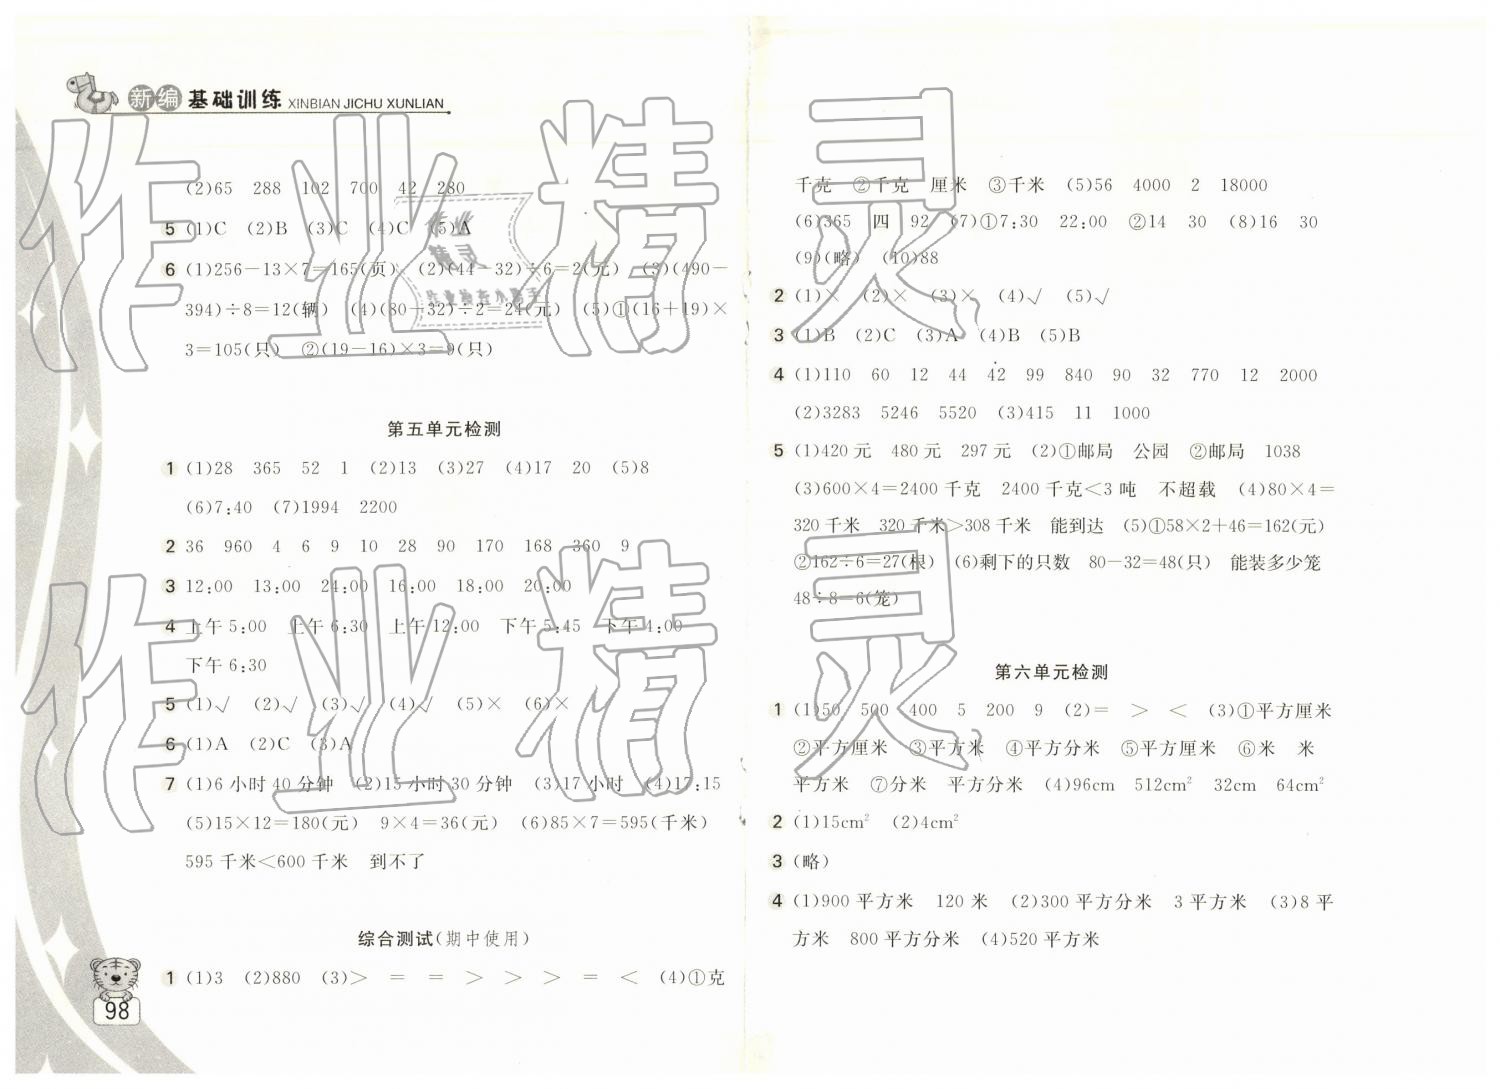 新编 基础训练 XINBIAN JICHU XUNLIAN
(2)65 288 102 700 42 280
5 (1)C (2)B (3)C (4)C (5)A
6 (1)256－13×7＝165(页) (2)(44－32)÷6＝2(元) (3)(490－
394)÷8＝12(辆) (4)(80－32)÷2＝24(元) (5)①(16＋19)×
3＝105(只) ②(19－16)×3＝9(只)
第五单元检测
1 (1)28 365 52 1 (2)13 (3)27 (4)17 20 (5)8
(6)7:40 (7)1994 2200
2 36 960 4 6 9 10 28 90 170 168 360 9
3 12:00 13:00 24:00 16:00 18:00 20:00
4 上午5:00 上午6:30 上午12:00 下午5:45 下午4:00
下午6:30
5 (1)√ (2)√ (3)√ (4)√ (5)× (6)×
6 (1)A (2)C (3)A
7 (1)6小时40分钟 (2)15小时30分钟 (3)17小时 (4)17:15
(5)15×12＝180(元) 9×4＝36(元) (6)85×7＝595(千米)
595千米＜600千米 到不了
综合测试(期中使用)
1 (1)3 (2)880 (3)＞ ＝ ＝ ＞ ＞ ＞ ＝ ＜ (4)①克
98
千克 ②千克 厘米 ③千米 (5)56 4000 2 18000
(6)365 四 92 (7)①7:30 22:00 ②14 30 (8)16 30
(9)(略) (10)88
2 (1)× (2)× (3)× (4)√ (5)√
3 (1)B (2)C (3)A (4)B (5)B
4 (1)110 60 12 44 42 99 840 90 32 770 12 2000
(2)3283 5246 5520 (3)415 11 1000
5 (1)420元 480元 297元 (2)①邮局 公园 ②邮局 1038
(3)600×4＝2400千克 2400千克＜3吨 不超载 (4)80×4＝
320千米 320千米＞308千米 能到达 (5)①58×2＋46＝162(元)
②162÷6＝27(根) (6)剩下的只数 80－32＝48(只) 能装多少笼
48÷8＝6(笼)
第六单元检测
1 (1)50 500 400 5 200 9 (2)＝ ＞ ＜ (3)①平方厘米
②平方厘米 ③平方米 ④平方分米 ⑤平方厘米 ⑥米 米
平方米 ⑦分米 平方分米 (4)96cm 512cm² 32cm 64cm²
2 (1)15cm² (2)4cm²
3 (略)
4 (1)900平方米 120米 (2)300平方分米 3平方米 (3)8平
方米 800平方分米 (4)520平方米
作业精灵
作业精灵
作业
精灵